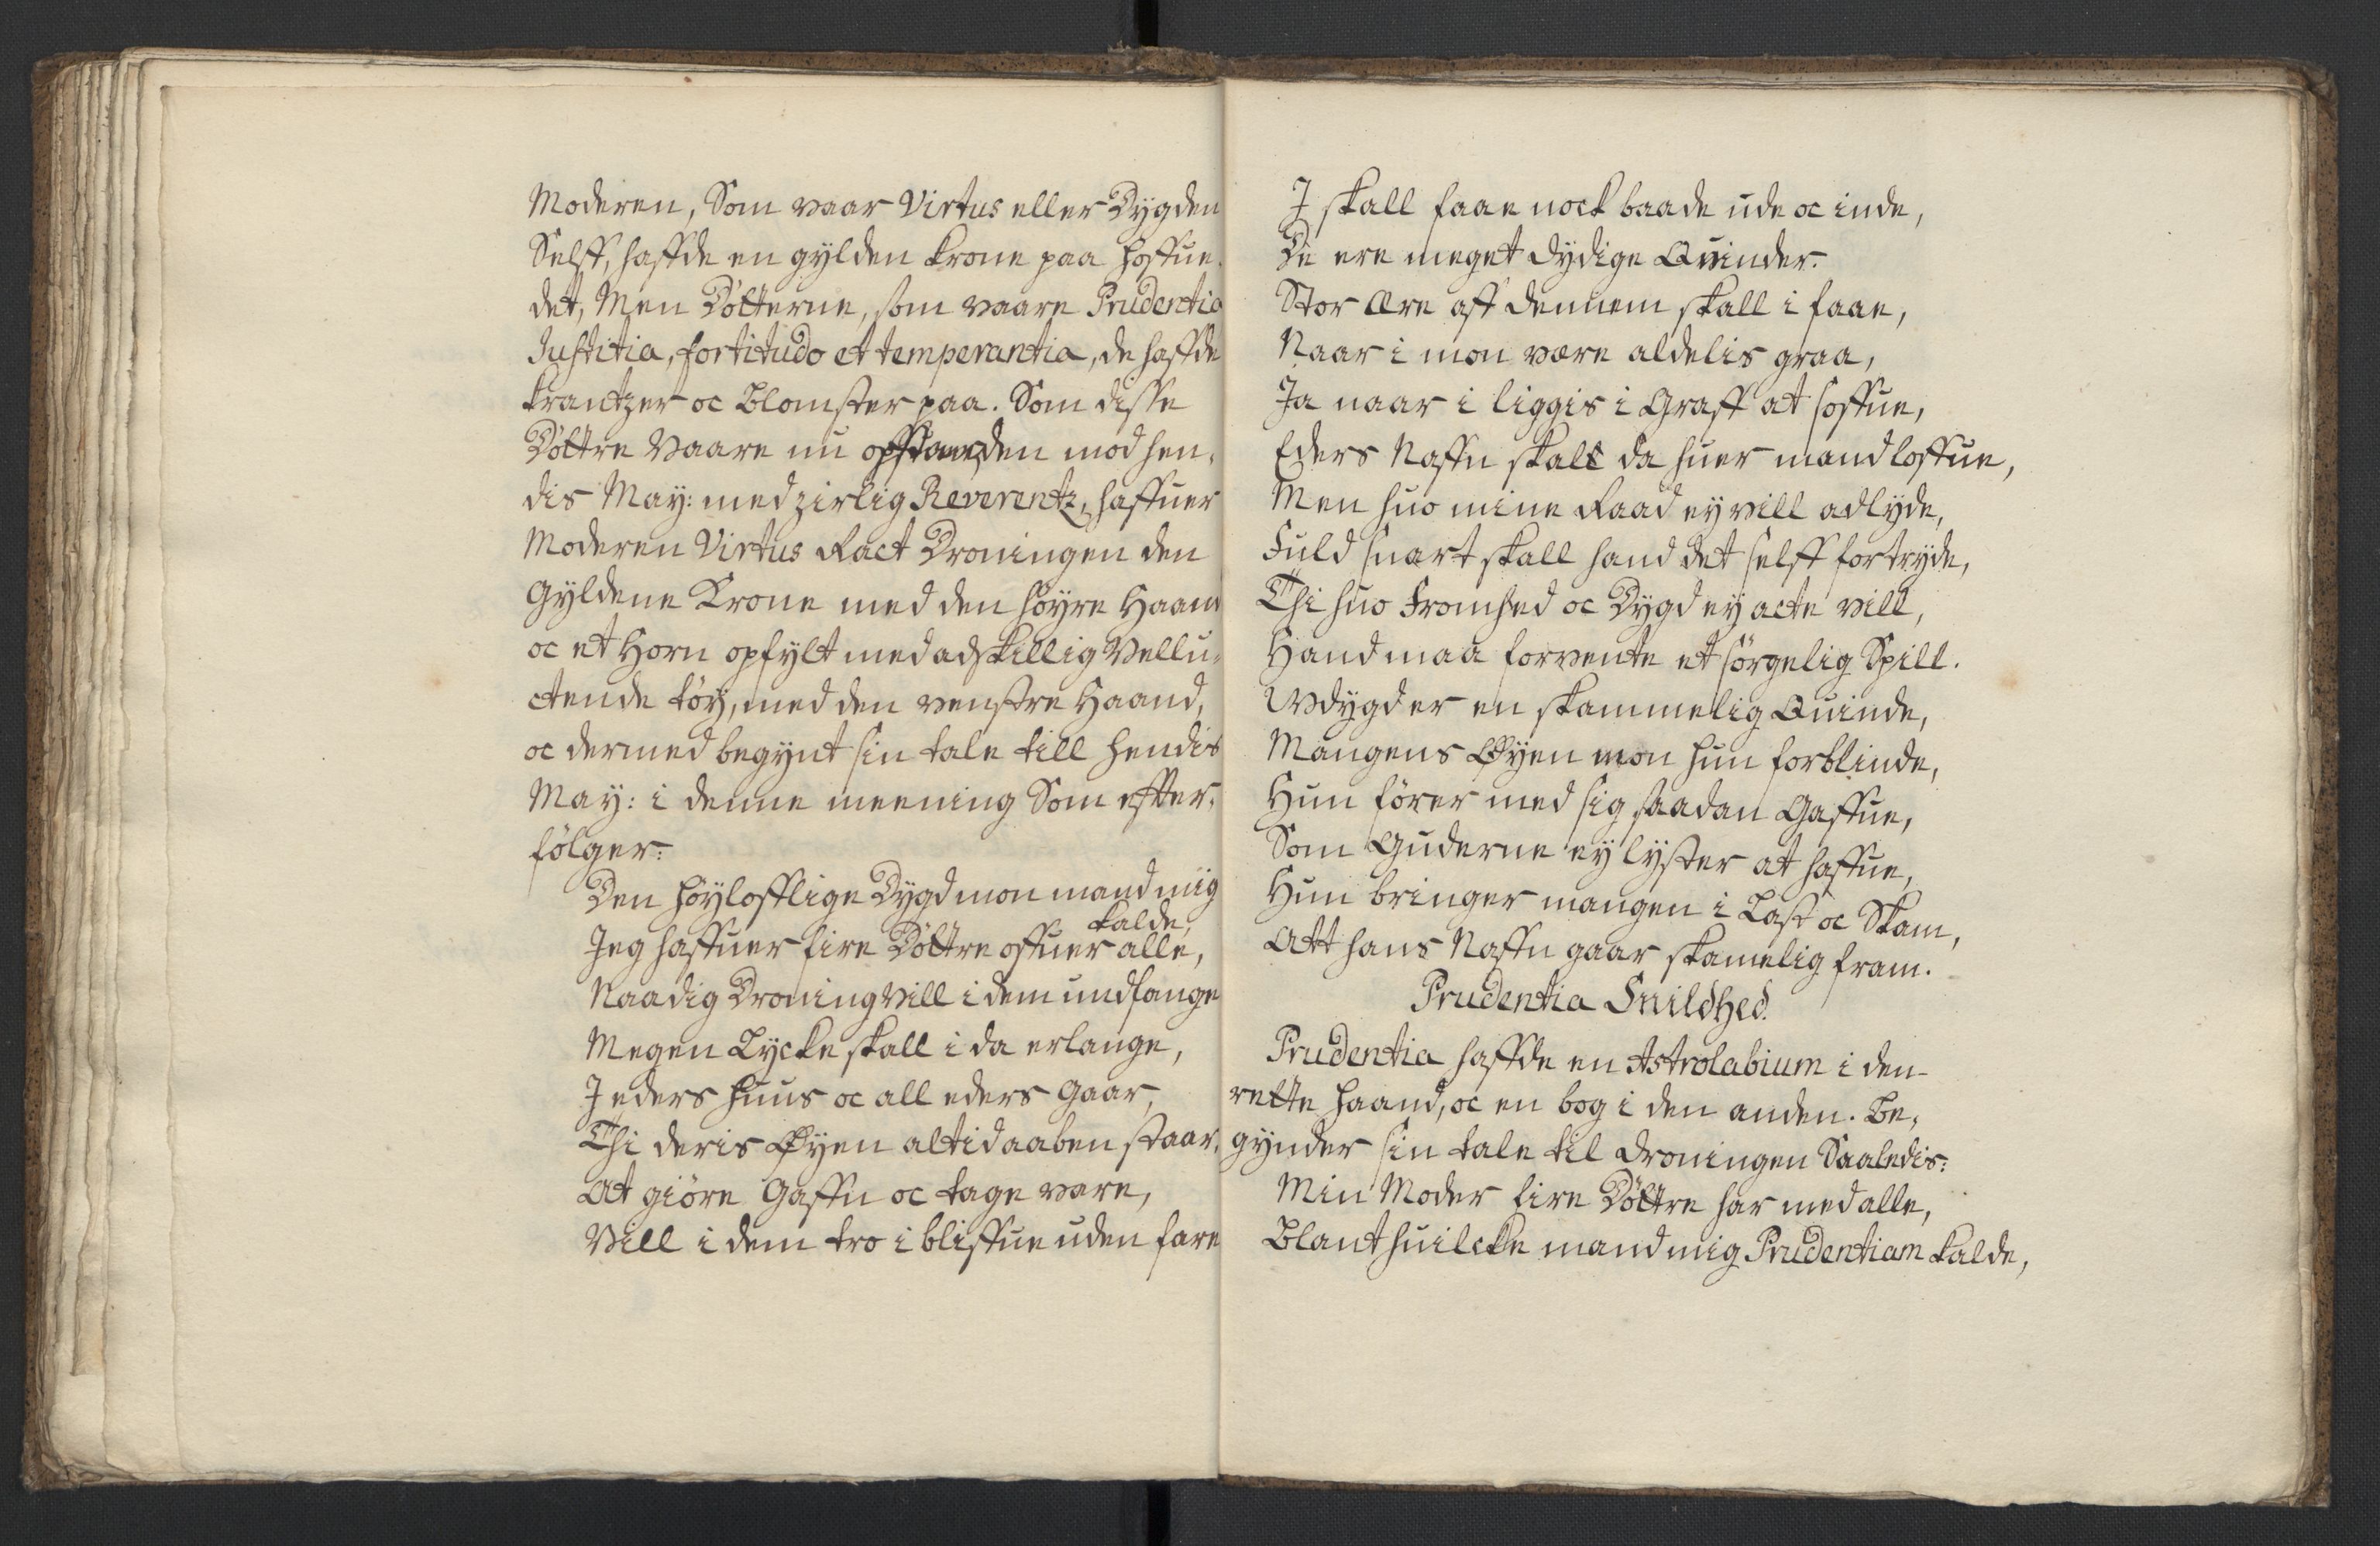 Moderen, Som vaar Virtus eller Dygden
Selff, haffde en gylden krone paa hoffue,
det, Men Dötterne, som vaare Prudentia
Justitia, fortitudo et temperantia, de haffde
krantzer oc blomster paa. Som disse
Döttre vaare nu opstanden mod hen,
dis May: med zirlig Reverentz, haffuer
Moderen Virtus Ract Droningen den
Gyldene Krone med den höyre Haand
oc et Horn opfylt med adskillig Vellu,
ctende töy, med den venstre Haand,
oc dermed begynt sin tale till hendis
May: i denne meening Som effter,
fölger:
Den höylofflige Dygd mon mand mig
kalde,
Jeg haffuer fire Döttre offuer alle,
Naadig Droning Vill i dem undfange
Megen Lycke skall i da erlange,
I eders huus oc all eders Gaar,
Thi deris Øyen altid aaben staar,
At giöre Gaffn oc tage vare,
Vill i dem tro i bliffue uden fare
I skall faae nock baade ude oc inde,
De ere meget dydige Quinder.
Stor Ære aff dennem skall i faae,
Naar i mon være aldelis graa,
Ja naar i liggis i Graff at soffue,
Eders Naffn skall da huer mand loffue,
Men huo mine Raad ey vill adlyde,
Fuld snart skall hand det selff fortryde,
Thi huo Fromhed oc Dygd ey acte vill,
Hand maa forvente et sörgelig Spill.
Vdygd er en skammelig Quinde,
Mangens Øyen mon hun forblinde,
Hun förer med sig saadan Gaffue,
Som Guderne ey lyster at haffue,
Hun bringer mangen i Last oc Skam,
Att hans Naffn gaar skamelig fram.
Prudentia Snildhed
Prudentia haffde en Astrolabium i den
rette Haand, oc en bog i den anden. Be,
gynder sin tale til Droningen Saaledis:
Min Moder fire Döttre har med alle,
Blant huilcke mand mig Prudentiam kalde,